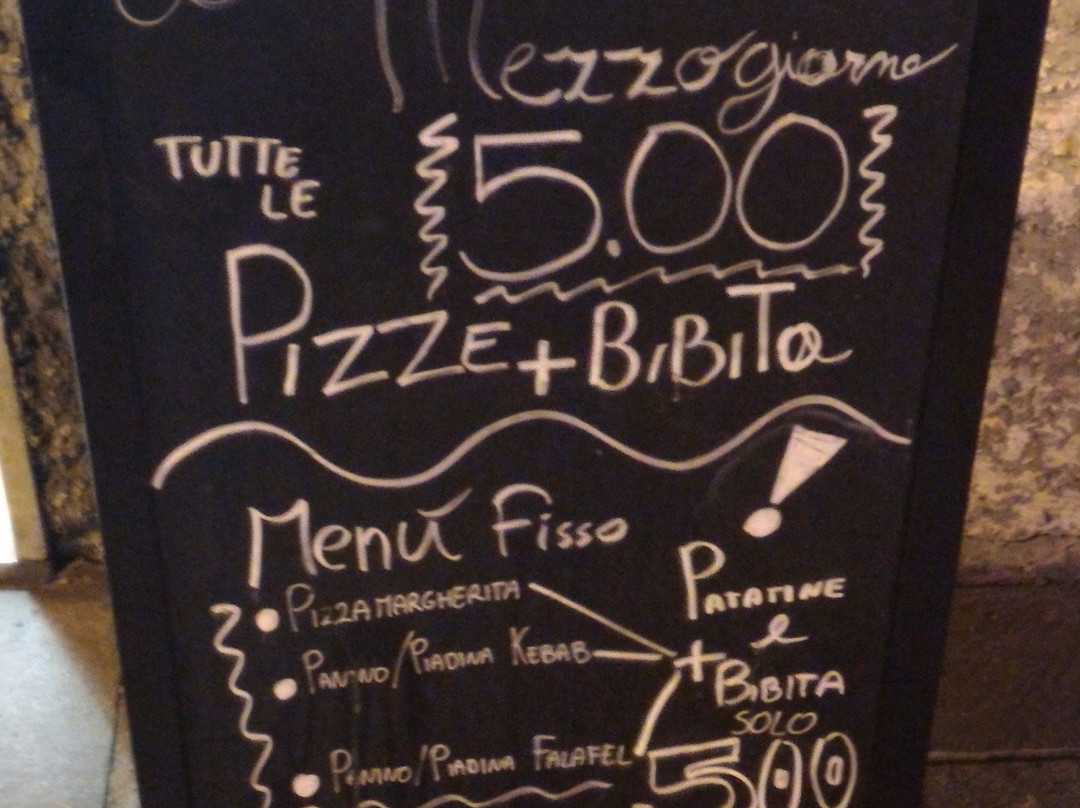 Mezzogiorno
TUTTE
LE
5.00
PIZZE + BIBITa
Menú Fisso
PIZZA MARGHERITA
PANINO/PIADINA KEBAB
PANINO/PIADINA FALAFEL
PATATINE
e
+ BIBITA
SOLO
500